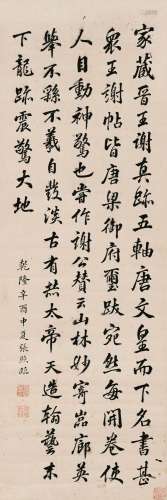 家藏晉王謝真跡五軸唐文皇而下名書甚
衆王謝帖皆唐梁御府璽跋宛然每開卷使
人目動神驚也嘗作謝公贊云山林妙寄巖廊英
舉不繇不羲自發淡古有赫太帝天造翰藝末
下龍跡震驚大地
乾隆辛酉中夏張照臨